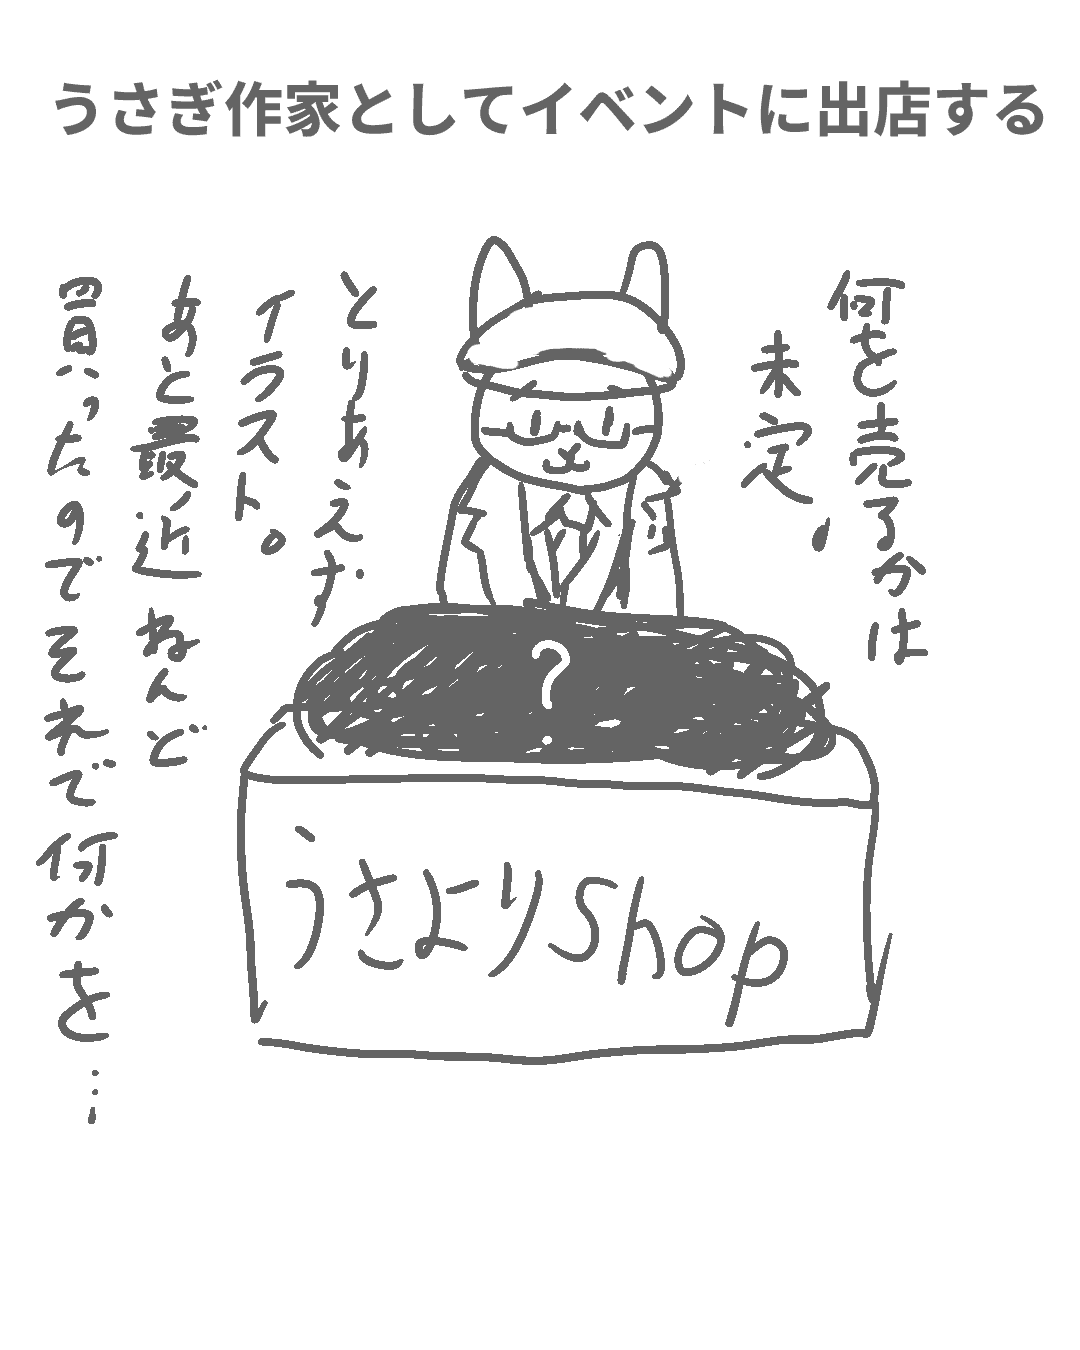 うさぎ作家としてイベントに出店する
何を売るかは
未定。
とりあえず
イラスト。
あと最近ねんど
買ったのでそれで何かを…
?
うさよりShop